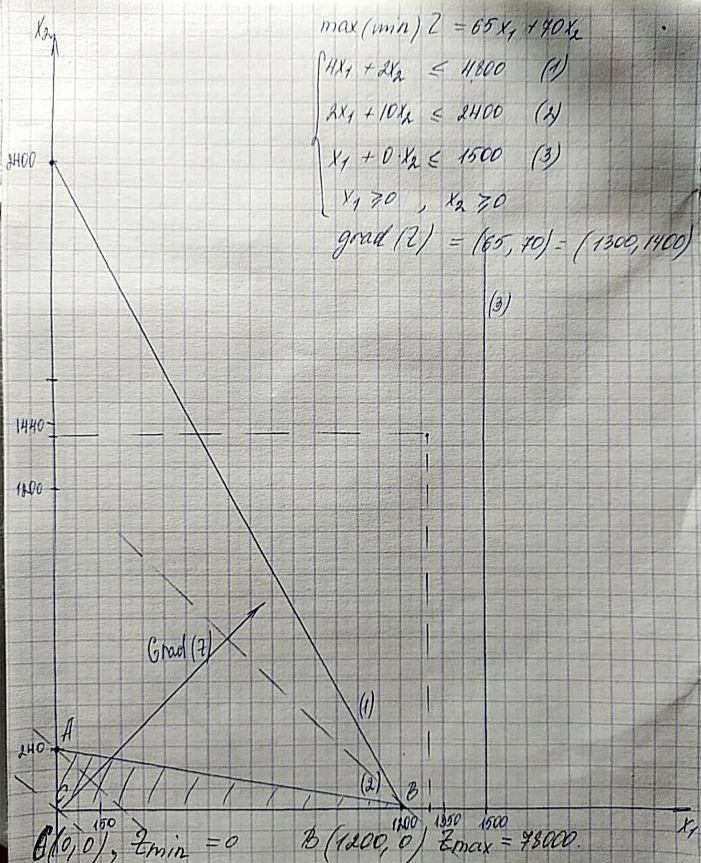 max(min) Z = 65x₁ + 70x₂
4x₁ + 2x₂ ≤ 4800 (1)
2x₁ + 10x₂ ≤ 2400 (2)
x₁ + 0·x₂ ≤ 1500 (3)
x₁ ≥ 0, x₂ ≥ 0
grad(Z) = (65, 70) = (1300, 1400)
x₂
2400
(3)
1440
1200
Grad(Z)
A
(1)
240
(2)
B
C
150
1200
1350
1500
x₁
C(0,0), Zmin = 0 B(1200,0) Zmax = 78000.